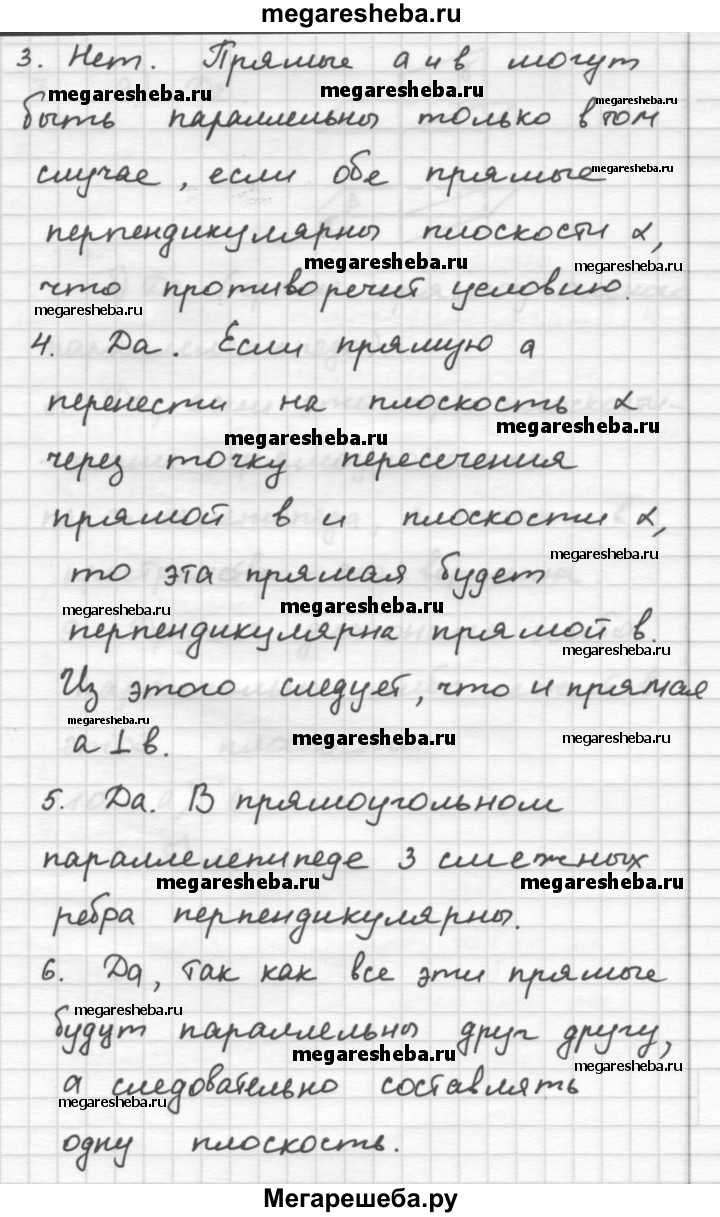 megaresheba.ru
3. Нет. Прямые а и в могут
megaresheba.ru megaresheba.ru megaresheba.ru
быть параллельны только в том
случае, если обе прямые megaresheba.ru
перпендикулярны плоскости α,
megaresheba.ru megaresheba.ru
что противоречит условию.
megaresheba.ru
4. Да. Если прямую а
перенести на плоскость α
megaresheba.ru megaresheba.ru
через точку пересечения
прямой в и плоскости α,
megaresheba.ru
то эта прямая будет
megaresheba.ru megaresheba.ru
перпендикулярна прямой в.
megaresheba.ru
Из этого следует, что и прямая
megaresheba.ru megaresheba.ru megaresheba.ru
а ⊥ в.
5. Да. В прямоугольном
параллелепипеде 3 смежных
megaresheba.ru megaresheba.ru
ребра перпендикулярны.
6. Да, так как все эти прямые
megaresheba.ru
будут параллельны друг другу,
megaresheba.ru megaresheba.ru
а следовательно составлять
megaresheba.ru
одну плоскость.
Мегарешеба.ру